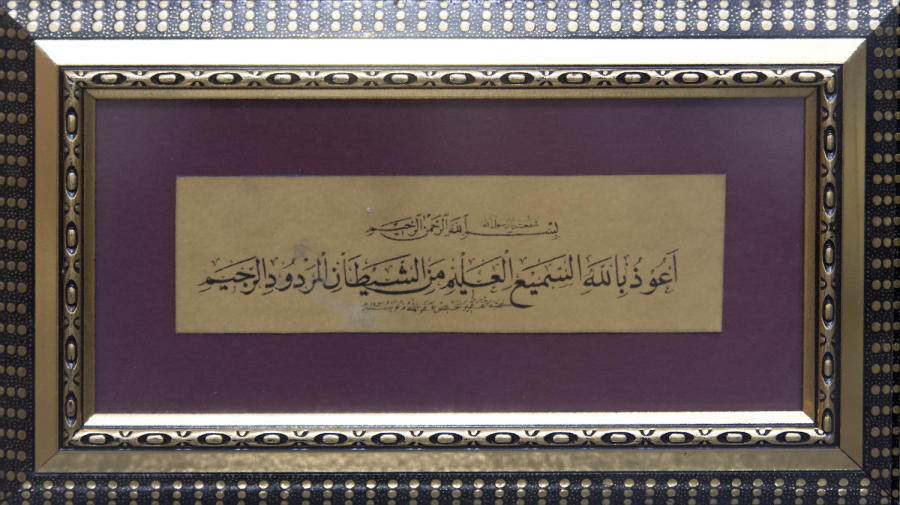 شفاعت يا رسول الله
بسم الله الرحمن الرحيم
أعوذ بالله السميع العليم من الشيطان المردود الرجيم